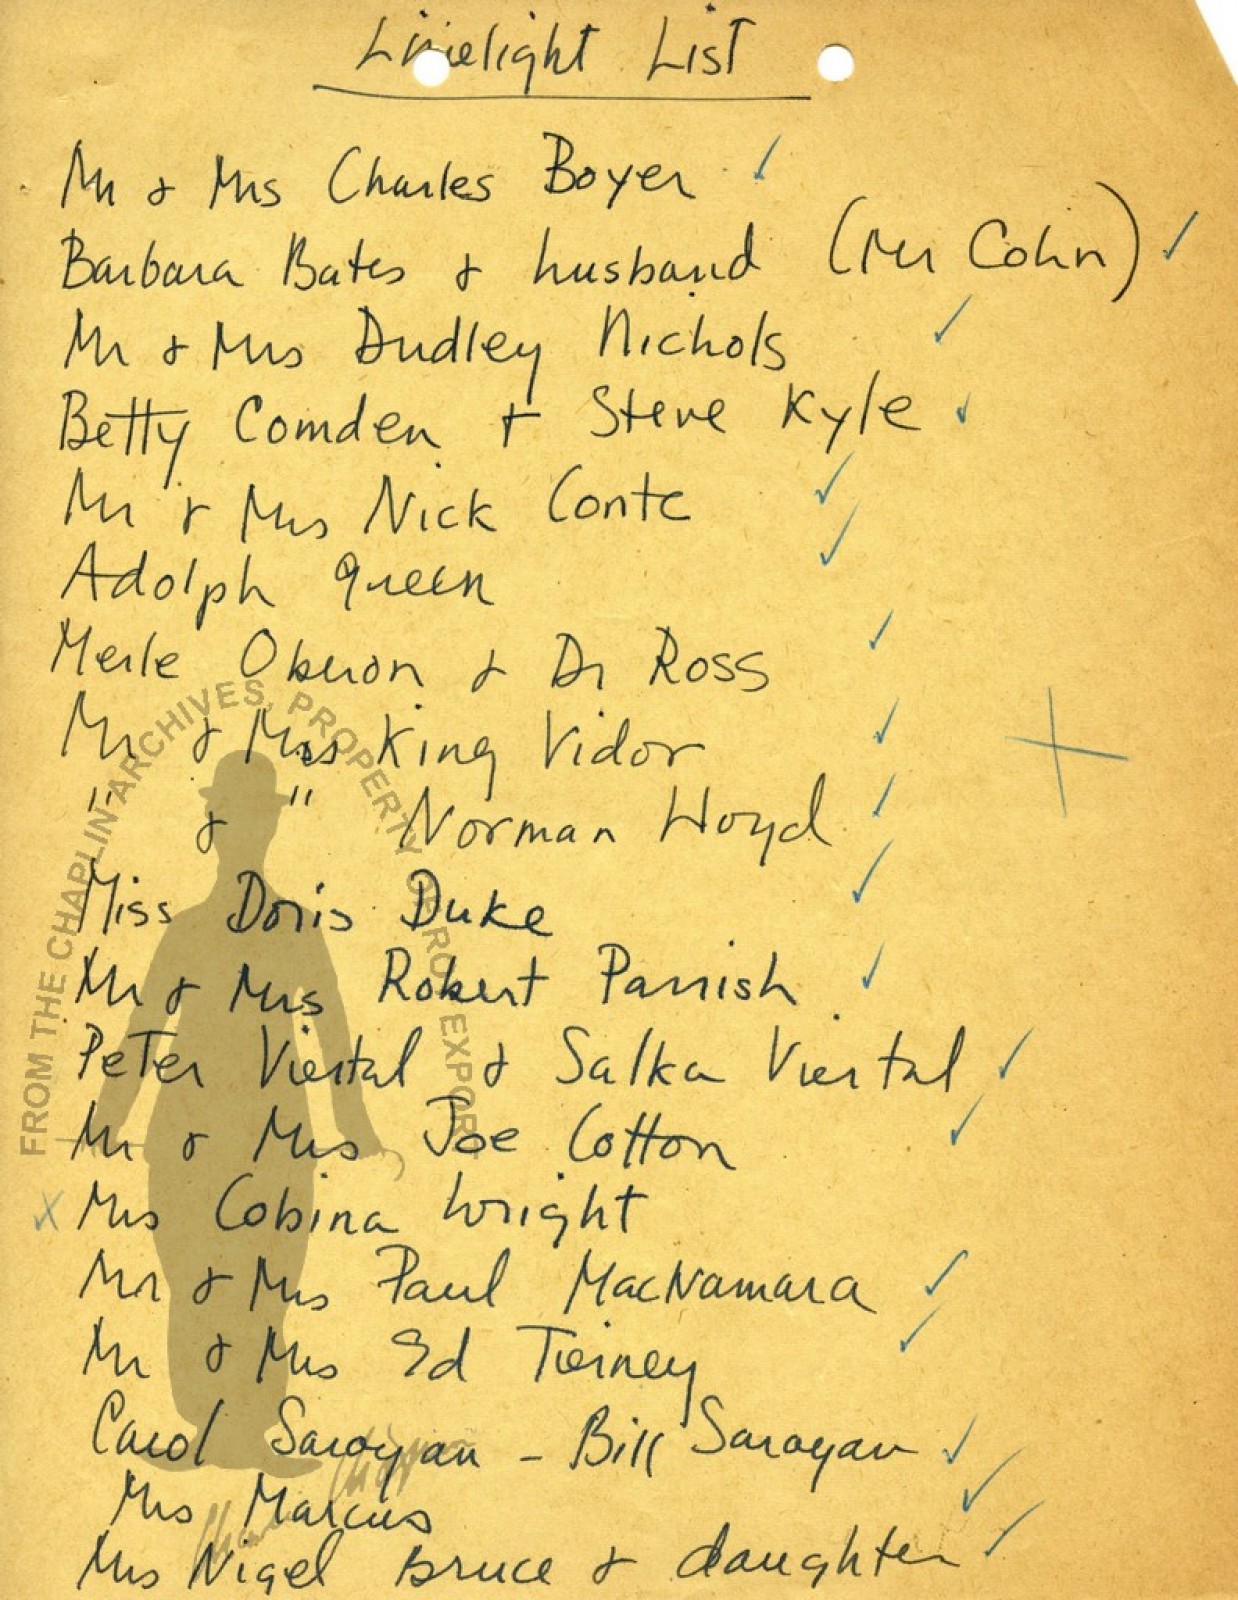 Limelight List
Mr & Mrs Charles Boyer ✓
Barbara Bates & husband (Mr Cohn) ✓
Mr & Mrs Dudley Nichols ✓
Betty Comden + Steve Kyle ✓
Mr & Mrs Nick Conte ✓
Adolph Green ✓
Merle Oberon & Dr Ross ✓
Mr & Mrs King Vidor ✓
" & " Norman Lloyd ✓
Miss Doris Duke ✓
Mr & Mrs Robert Parrish ✓
Peter Viertal & Salka Viertal ✓
Mr & Mrs Joe Cotton ✓
x Mrs Cobina Wright
Mr & Mrs Paul MacNamara ✓
Mr & Mrs Ed Tierney ✓
Carol Saroyan - Bill Saroyan ✓
Mrs Marcus ✓
Mrs Nigel Bruce & daughter ✓
FROM THE CHAPLIN ARCHIVES, PROPERTY OF ROY EXPORT